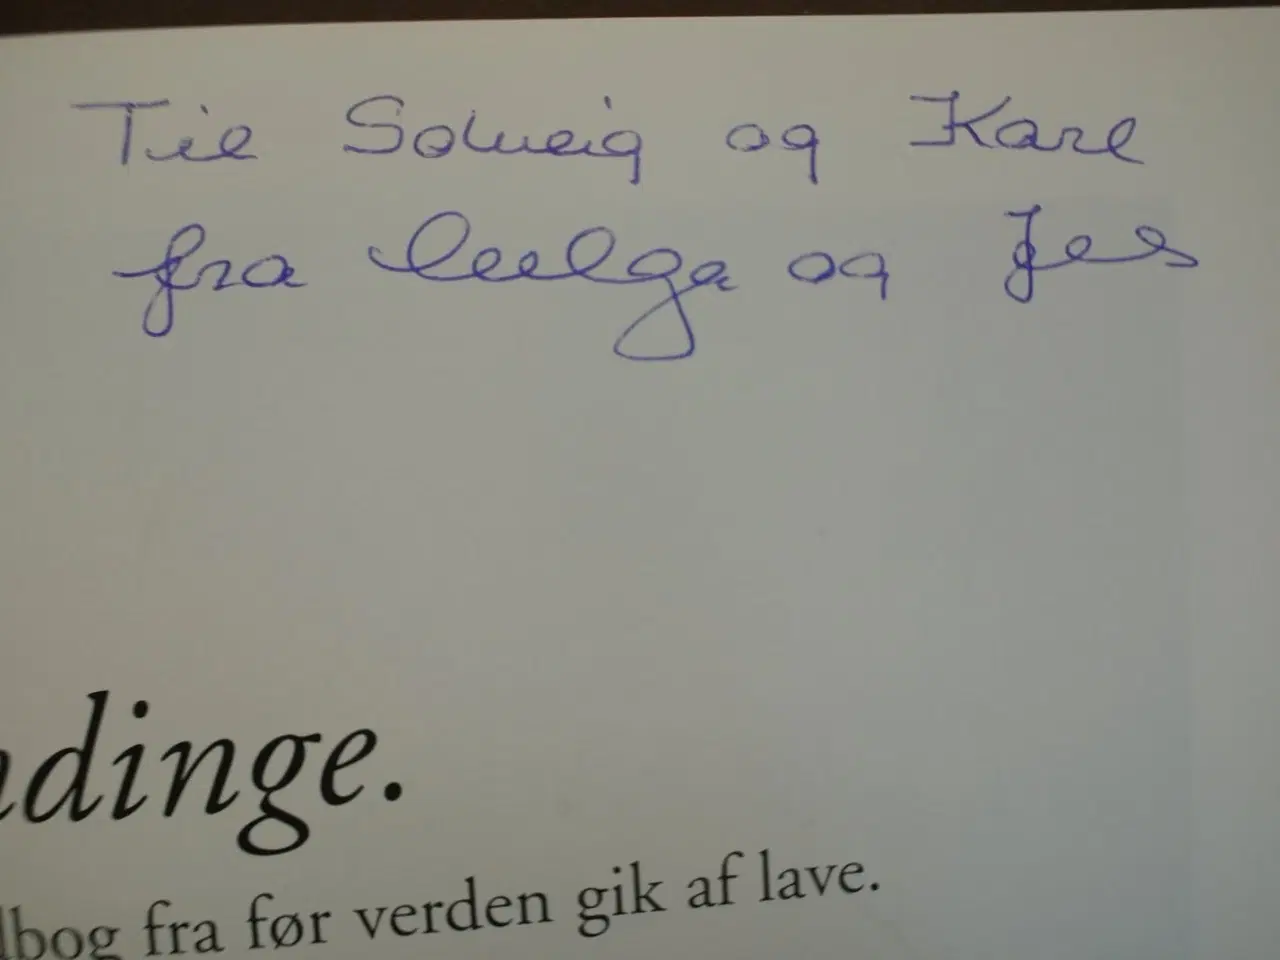 Til Solveig og Karl
fra Helga og Jes
ndinge.
lbog fra før verden gik af lave.